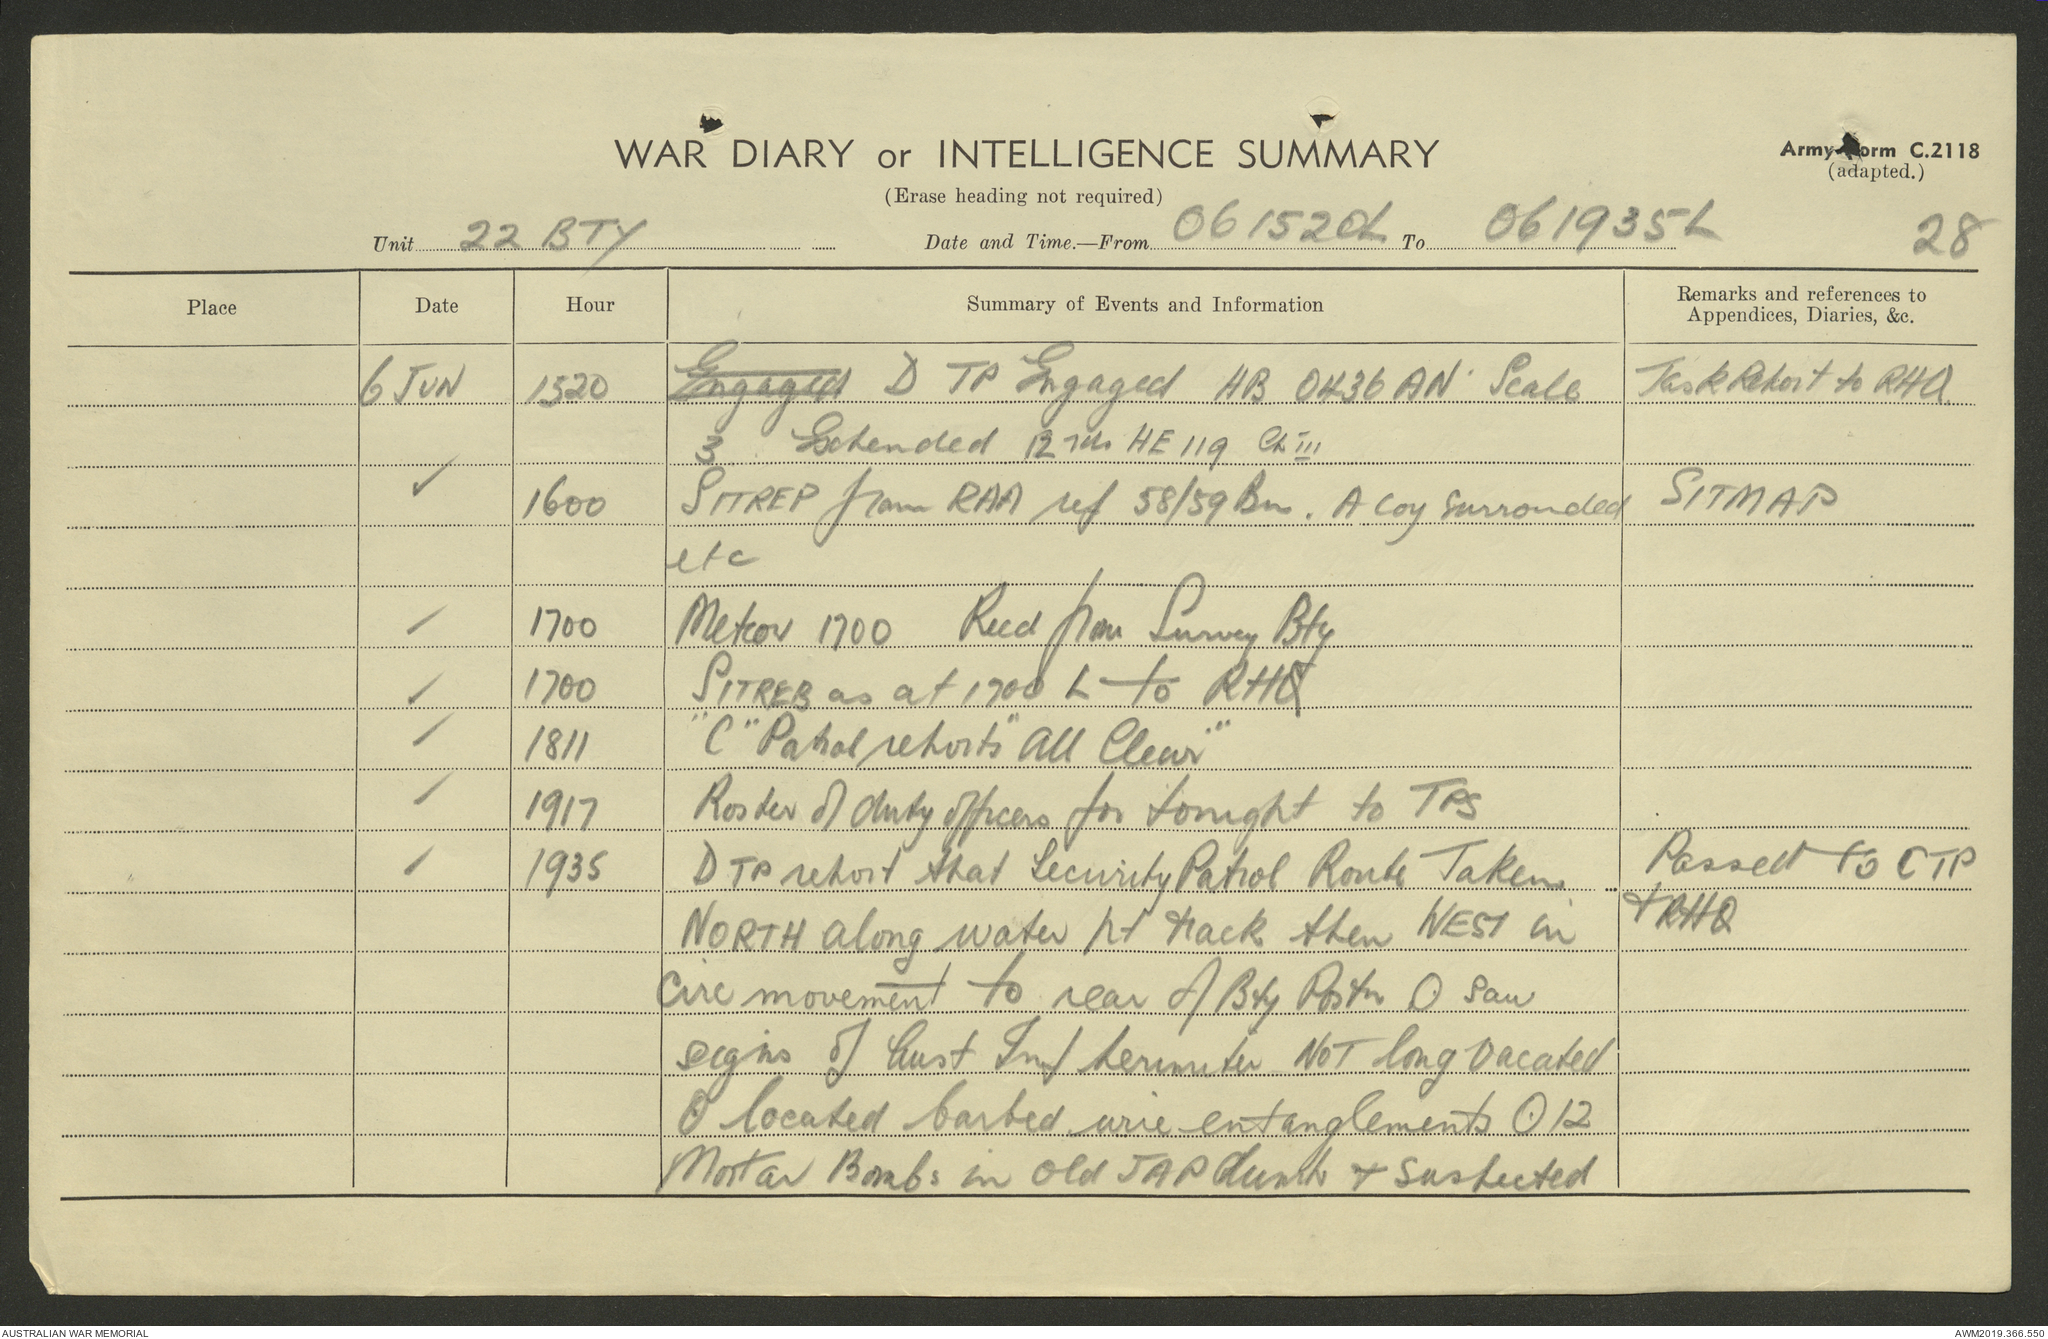 WAR DIARY or INTELLIGENCE SUMMARY
Army Form C.2118
(Erase heading not required)
(adapted.)
Unit 22 BTY Date and Time.—From 061520L To 061935L 28
Place Date Hour Summary of Events and Information Remarks and references to
Appendices, Diaries, &c.
6 JUN 1520 Engaged D TP Engaged HB 0436 AN Scale Task Report to RHQ
3 Extended 12 rds HE 119 Ch III
✓ 1600 SITREP from RAA ref 58/59 Bn. A Coy surrounded SITMAP
etc
✓ 1700 Meteor 1700 Recd from Survey Bty
✓ 1700 SITREP as at 1700 L to RHQ
✓ 1811 "C" Patrol reports "All Clear"
✓ 1917 Roster of duty officers for tonight to TPS
✓ 1935 D TP report that Security Patrol Route Taken Passed to C TP
NORTH along water pt track then WEST in + RHQ
circ movement to rear of Bty Postn O saw
signs of Aust Inf perimeter NOT long vacated
O located barbed wire entanglements O 12
Mortar Bombs in old JAP dump + suspected
AUSTRALIAN WAR MEMORIAL AWM2019.366.550